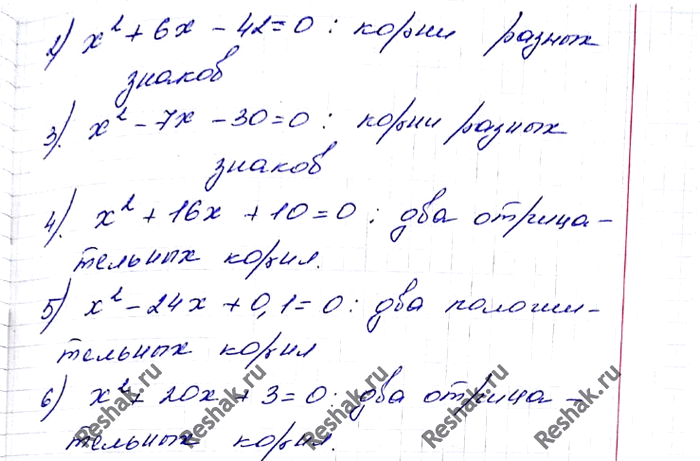 2) x² + 6x - 42 = 0 : корни разных
знаков
3). x² - 7x - 30 = 0 : корни разных
знаков
4). x² + 16x + 10 = 0 : два отрица-
тельных корня.
5) x² - 24x + 0,1 = 0 : два положи-
тельных корня
6) x² + 20x + 3 = 0 : два отрица-
тельных корня.
Reshak.ru Reshak.ru Reshak.ru Reshak.ru Reshak.ru